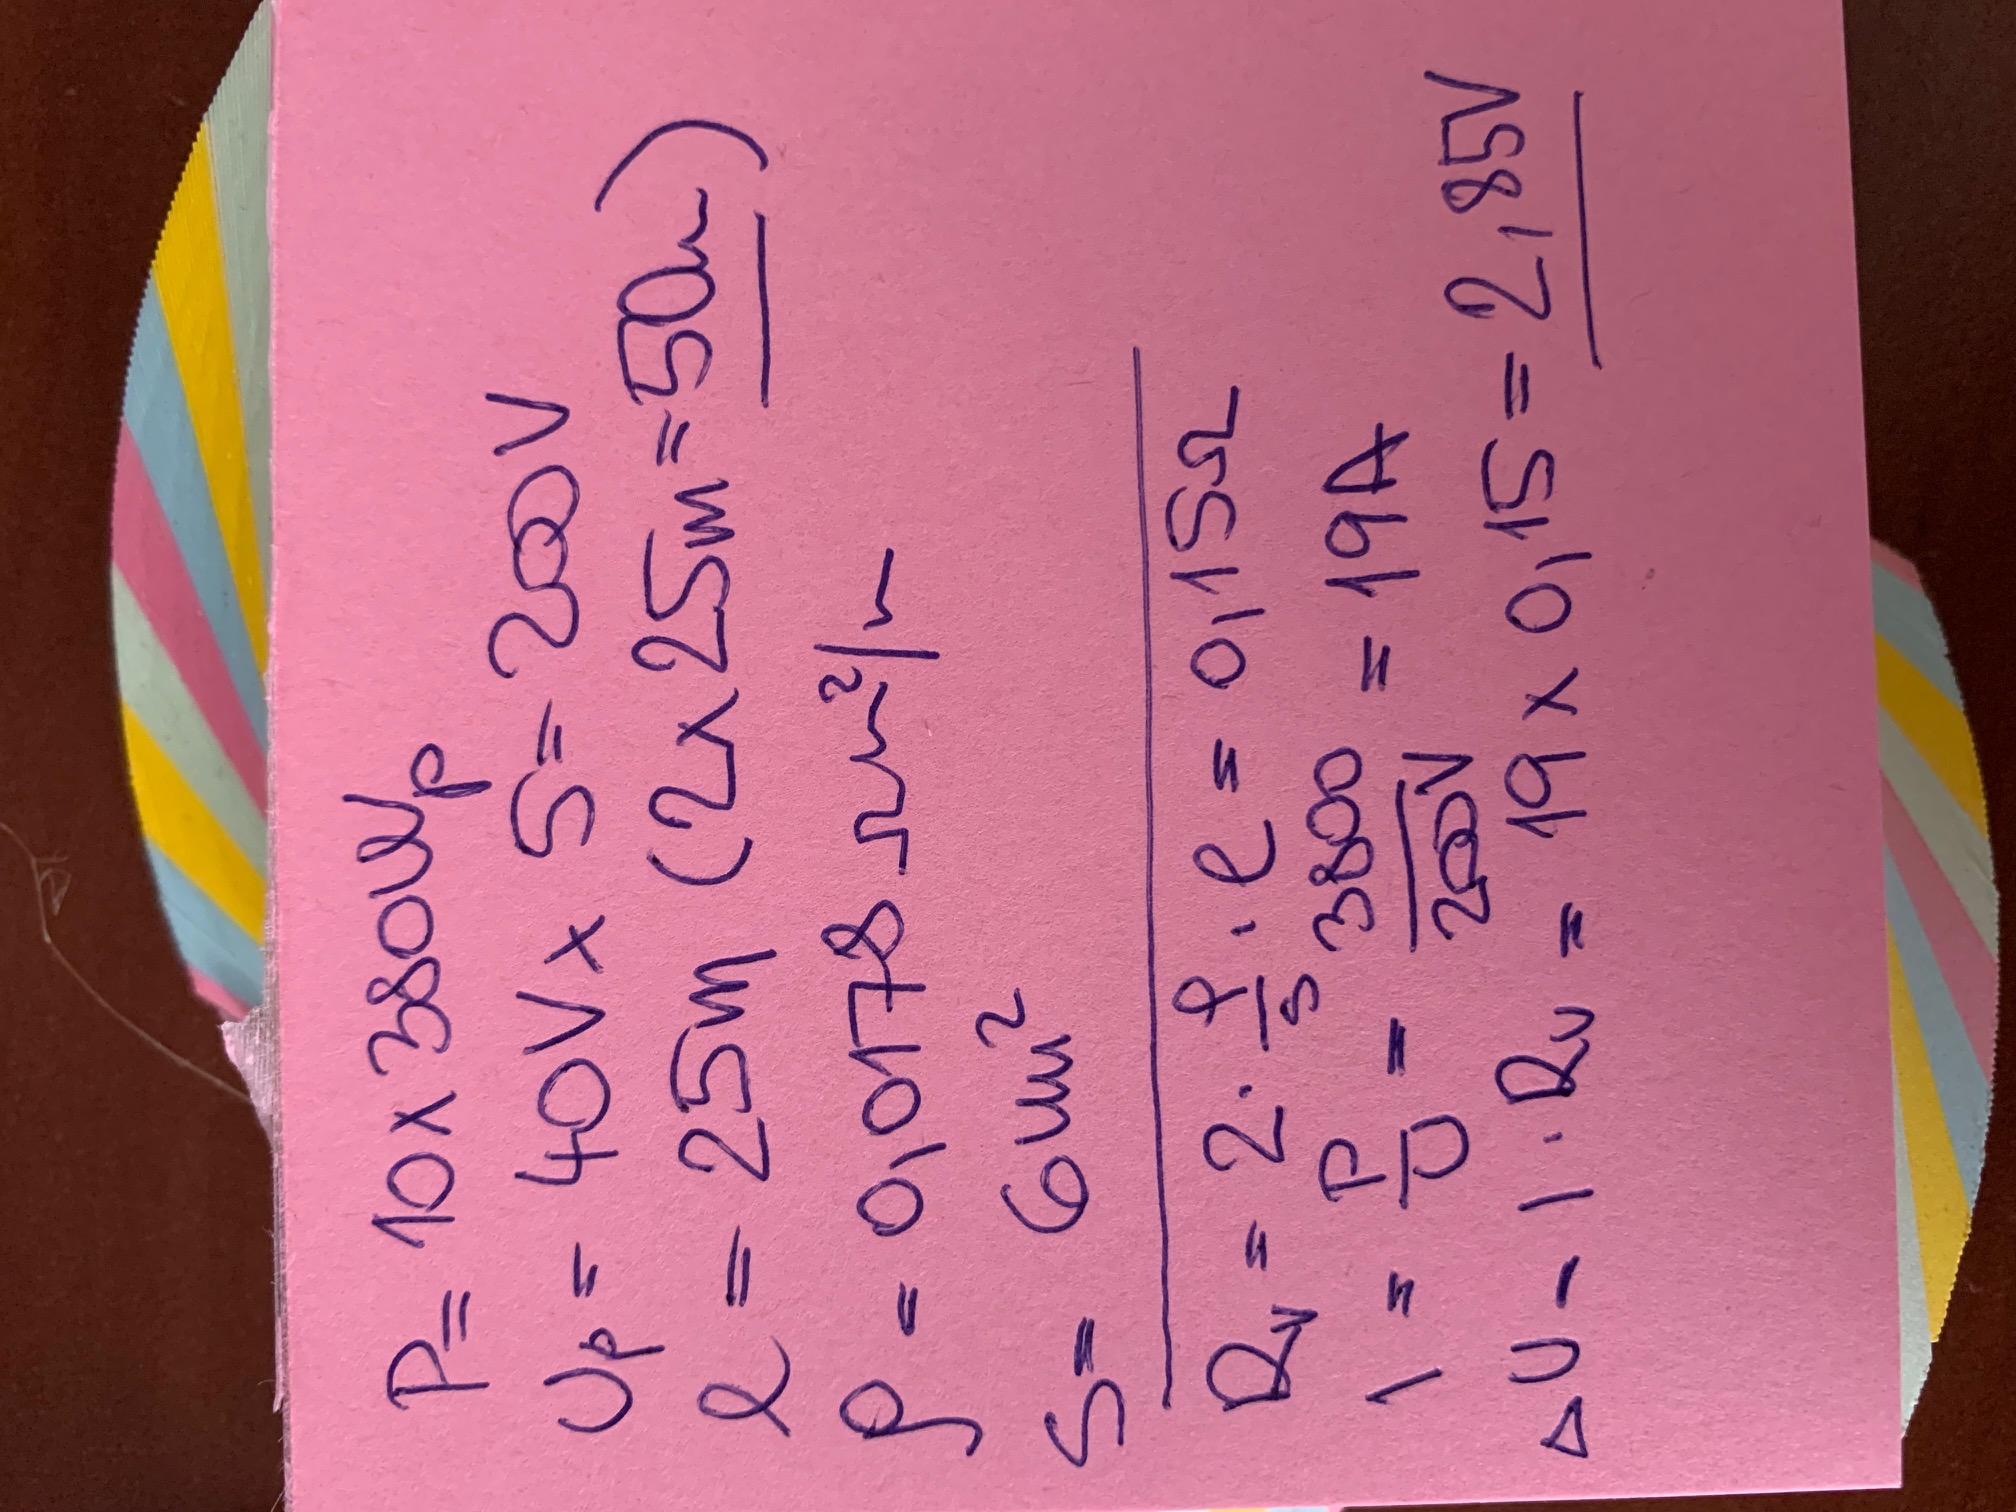 P= 10 x 380Wp
Up= 40V x 5= 200V
l = 25m (2x25m=50m)
ρ = 0,0178 Ωmm²/m
S= 6mm²
Rv = 2 · ρ/S · l = 0,15Ω
I = P/U = 3800/200V = 19A
ΔU - I · Rv = 19 x 0,15 = 2,85V